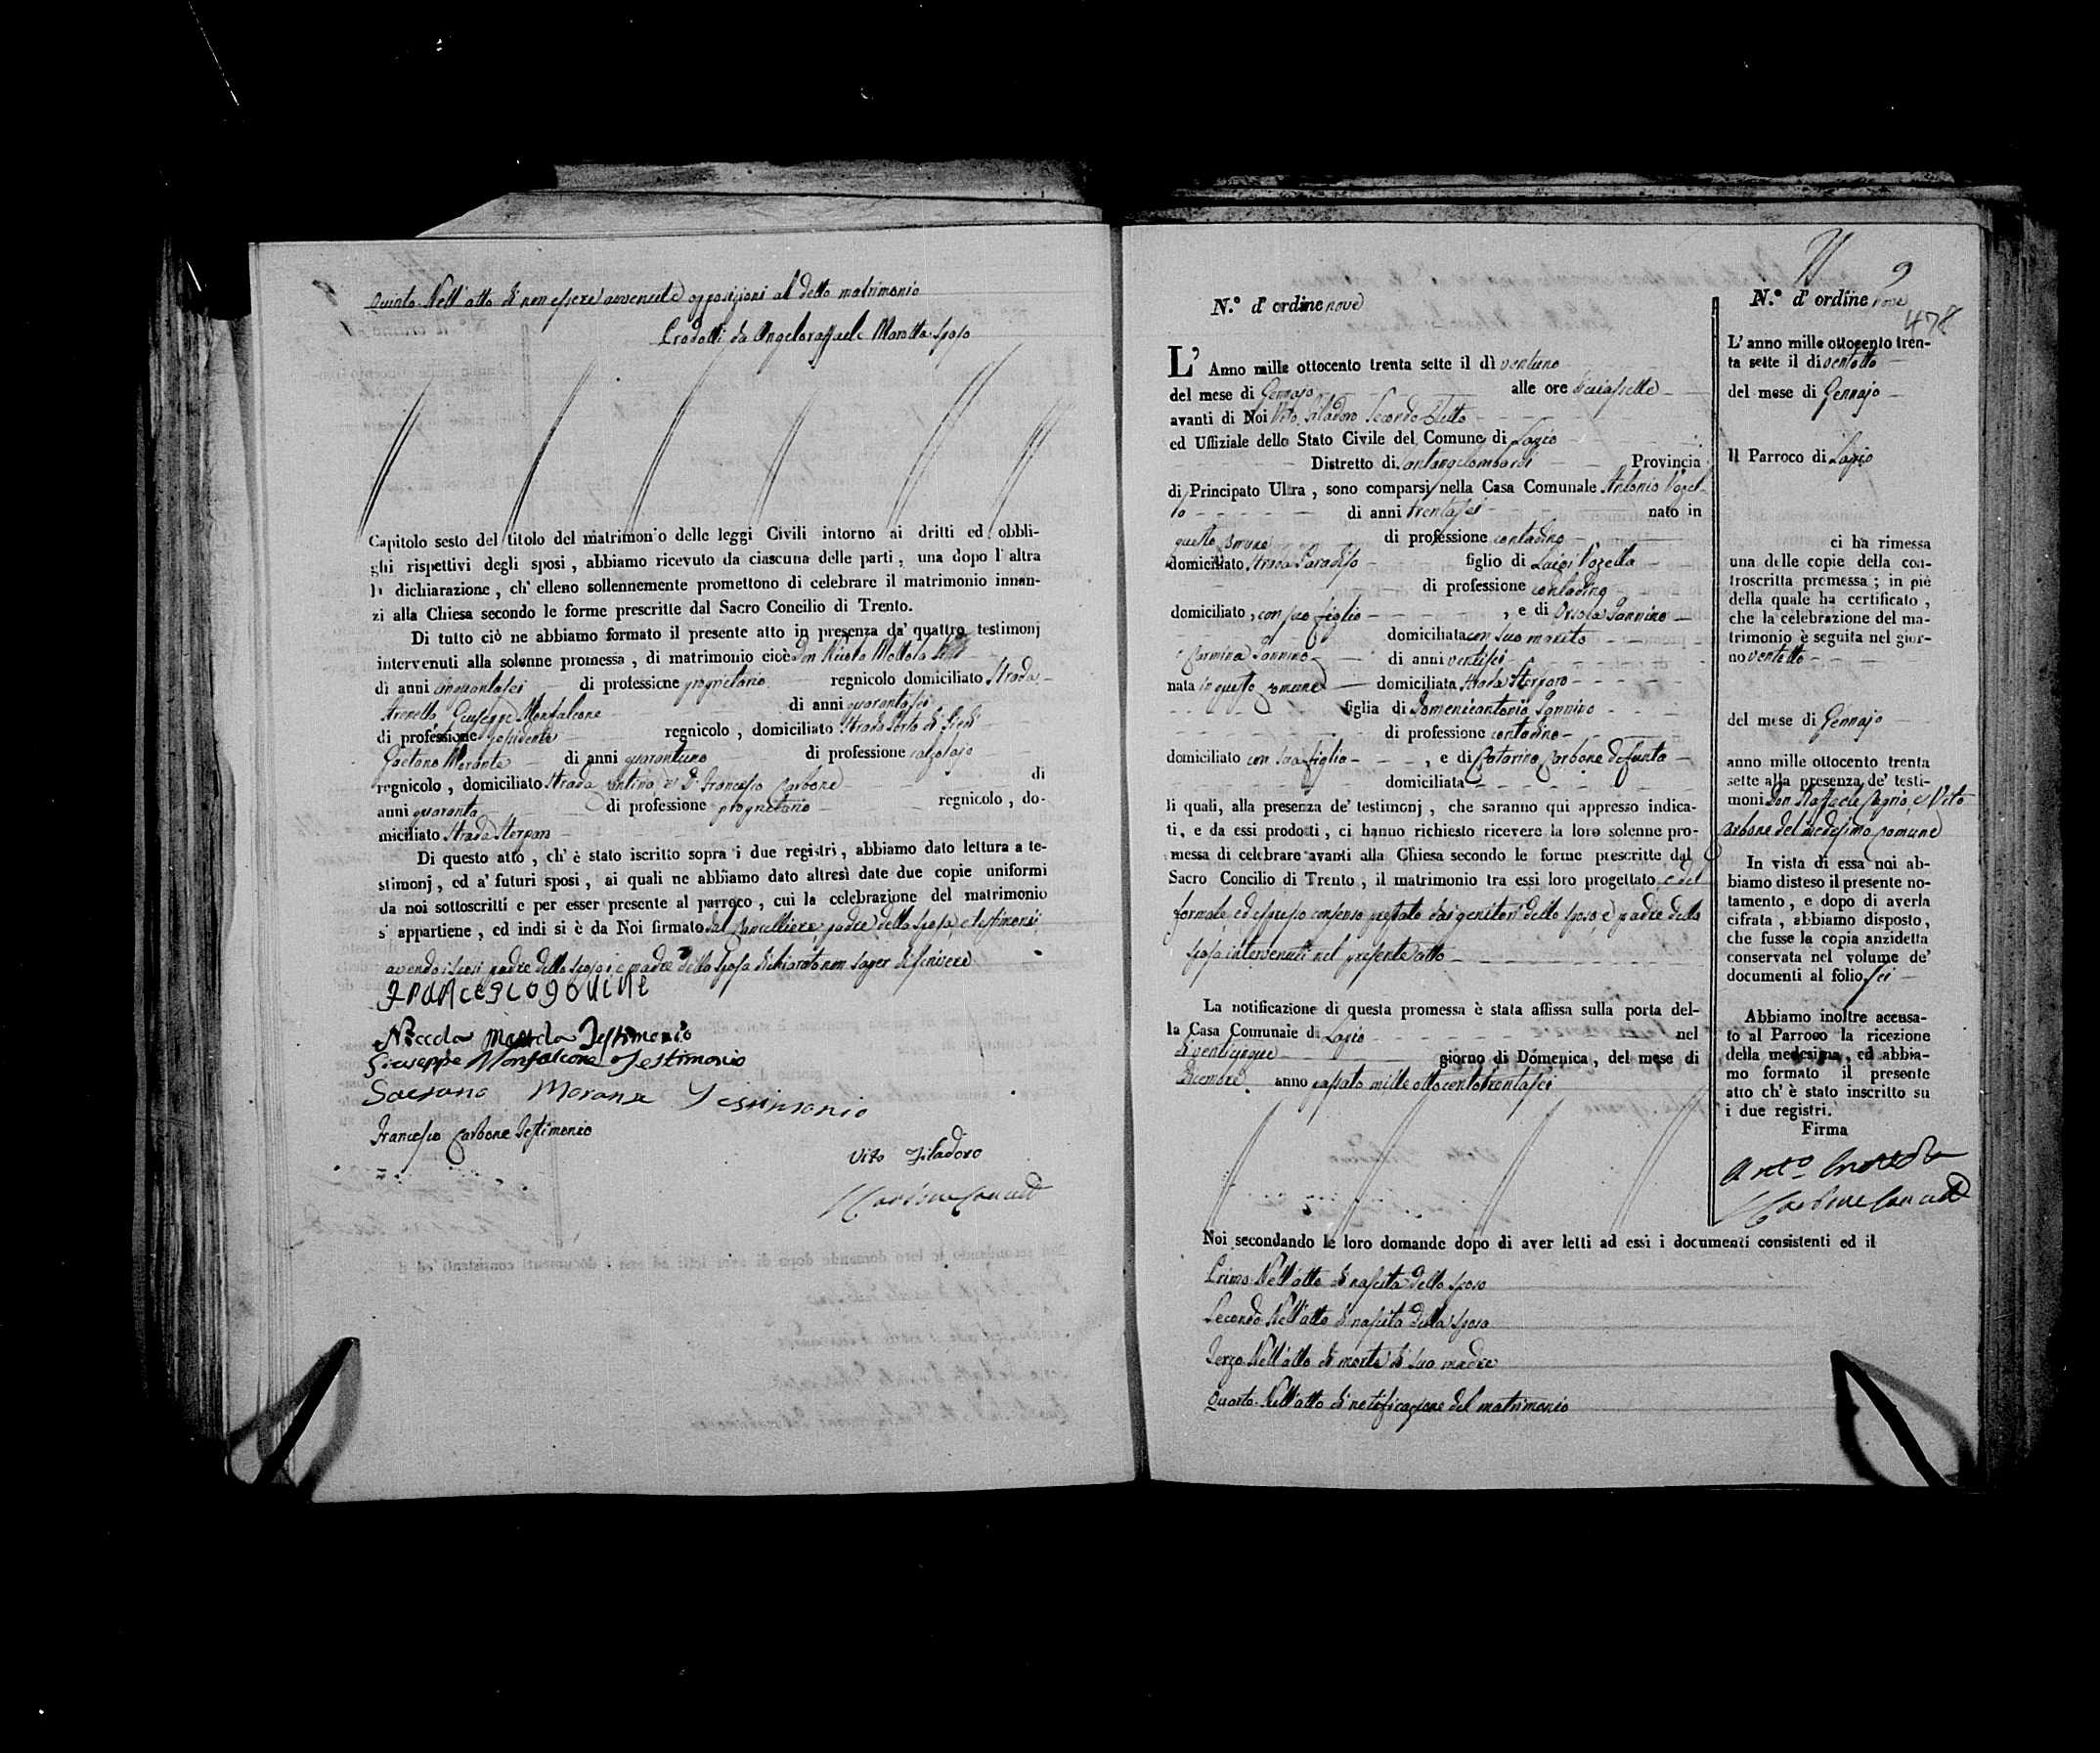 Quinto. Nell'atto di non essere avvenute opposizioni al detto matrimonio
Prodotti da Angeloraffaele Marotta sposo
Capitolo sesto del titolo del matrimon o delle leggi Civili intorno ai dritti ed obbli-
ghi rispettivi degli sposi, abbiamo ricevuto da ciascuna delle parti, una dopo l'altra
la dichiarazione, ch' elleno sollennemente promettono di celebrare il matrimonio innan-
zi alla Chiesa secondo le forme prescritte dal Sacro Concilio di Trento.
Di tutto ciò ne abbiamo formato il presente atto in presenza da' quattro testimonj
intervenuti alla solenne promessa, di matrimonio cioè Don Nicola Mottola
di anni cinquantasei di professione proprietario regnicolo domiciliato Strada
Giuseppe Monfalcone di anni quarantasei
di professione possidente regnicolo, domiciliato Strada Porto di
Gaetano Morante di anni quarantuno di professione calzolajo
regnicolo, domiciliato Strada D. Francesco Carbone di
anni quaranta di professione proprietario regnicolo, do-
miciliato Strada Sterparo
Di questo atto, ch' è stato iscritto sopra i due registri, abbiamo dato lettura a te-
stimonj, ed a' futuri sposi, ai quali ne abbiamo dato altresì date due copie uniformi
da noi sottoscritti e per esser presente al parroco, cui la celebrazione del matrimonio
s' appartiene, ed indi si è da Noi firmato dal Cancelliere, padre della sposa, e testimonj
avendo i sposi padre dello sposo, e madre della sposa dichiarato non saper di scrivere
Francesco Govine
Niccola Mottola Testimonio
Giuseppe Monfalcone Testimonio
Gaetano Morante Testimonio
Francesco Carbone Testimonio
Vito Filadoro
Carbone Canc
9
N.º d' ordine nove
L' Anno mille ottocento trenta sette il dì ventuno
del mese di Gennajo alle ore diciassette
avanti di Noi Vito Filadoro Secondo Eletto
ed Uffiziale dello Stato Civile del Comune di Lagio
Distretto di Santangelombardi Provincia
di Principato Ultra, sono comparsi nella Casa Comunale Antonio Vozel-
la di anni trentasei nato in
questo Comune di professione contadino
domiciliato Strada Paradiso figlio di Luigi Vozella
di professione contadino
domiciliato, con suo figlio, e di Orsola Iannino
domiciliata con suo marito
e Carmina Iannino di anni ventisei
nata in questo Comune domiciliata Strada Sterparo
figlia di Domenicantonio Iannino
di professione contadino
domiciliato con sua figlia, e di Catarina Carbone defunta
domiciliata
li quali, alla presenza de' testimonj, che saranno qui appresso indica-
ti, e da essi prodotti, ci hanno richiesto ricevere la loro solenne pro-
messa di celebrare avanti alla Chiesa secondo le forme prescritte dal
Sacro Concilio di Trento, il matrimonio tra essi loro progettato, e del
formale, ed espresso consenso prestato dai genitori dello sposo, e padre della
sposa intervenuti nel presente atto
La notificazione di questa promessa è stata affissa sulla porta del-
la Casa Comunale di Lagio nel
dì venticinque giorno di Domenica, del mese di
Dicembre anno passato mille ottocentotrentasei
Noi secondando le loro domande dopo di aver letti ad essi i documenti consistenti ed il
Primo. Nell'atto di nascita dello sposo
Secondo. Nell'atto di nascita della sposa
Terzo. Nell'atto di morte di sua madre
Quarto. Nell'atto di notificazione del matrimonio
N.º d' ordine nove
478
L' anno mille ottocento tren-
ta sette il dì ventotto
del mese di Gennajo
Il Parroco di Lagio
ci ha rimessa
una delle copie della con-
troscritta promessa; in piè
della quale ha certificato,
che la celebrazione del ma-
trimonio è seguita nel gior-
no ventotto
del mese di Gennajo
anno mille ottocento trenta
sette alla presenza de' testi-
moni Don Raffaele , e Vito
Carbone del medesimo Comune
In vista di essa noi ab-
biamo disteso il presente no-
tamento, e dopo di averla
cifrata, abbiamo disposto,
che fusse la copia anzidetta
conservata nel volume de'
documenti al folio sei
Abbiamo inoltre accusa-
to al Parroco la ricezione
della medesima, ed abbia-
mo formato il presente
atto ch' è stato inscritto su
i due registri.
Firma
Carbone Canc